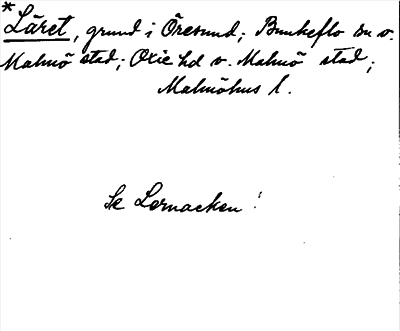 *Läret, grund i Öresund; Bunkeflo sn v.
Malmö stad; Oxie hd v. Malmö stad;
Malmöhus l.
Se Lernacken!